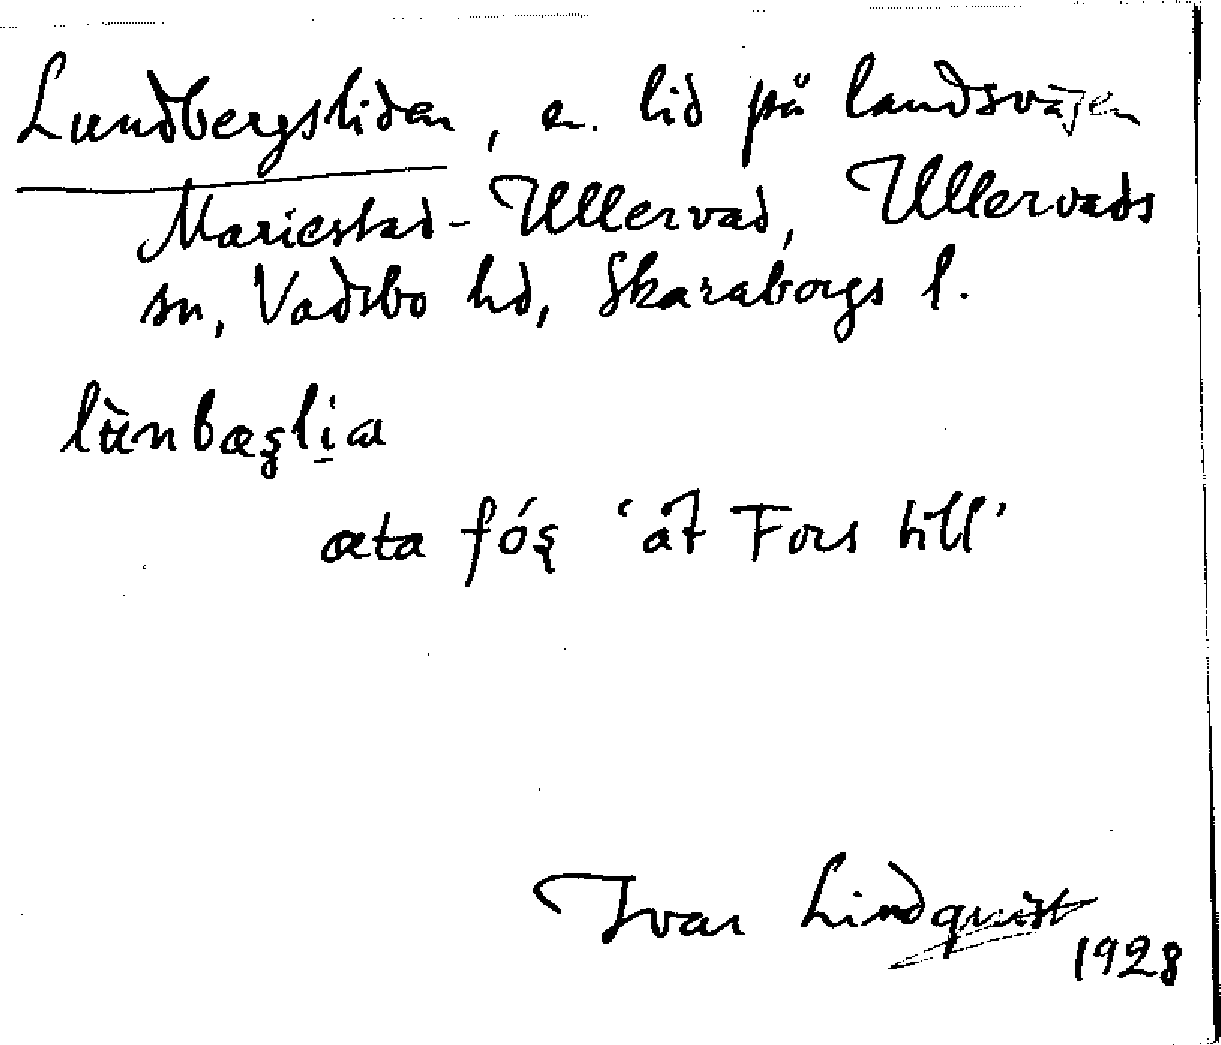 Lundbergsliden, en lid på landsvägen
Mariestad-Ullervad, Ullervads
sn, Vadsbo hd, Skaraborgs l.
lùnbæʂli̱a
æta fóʂ 'åt Fors till'
Ivar Lindquist
1928